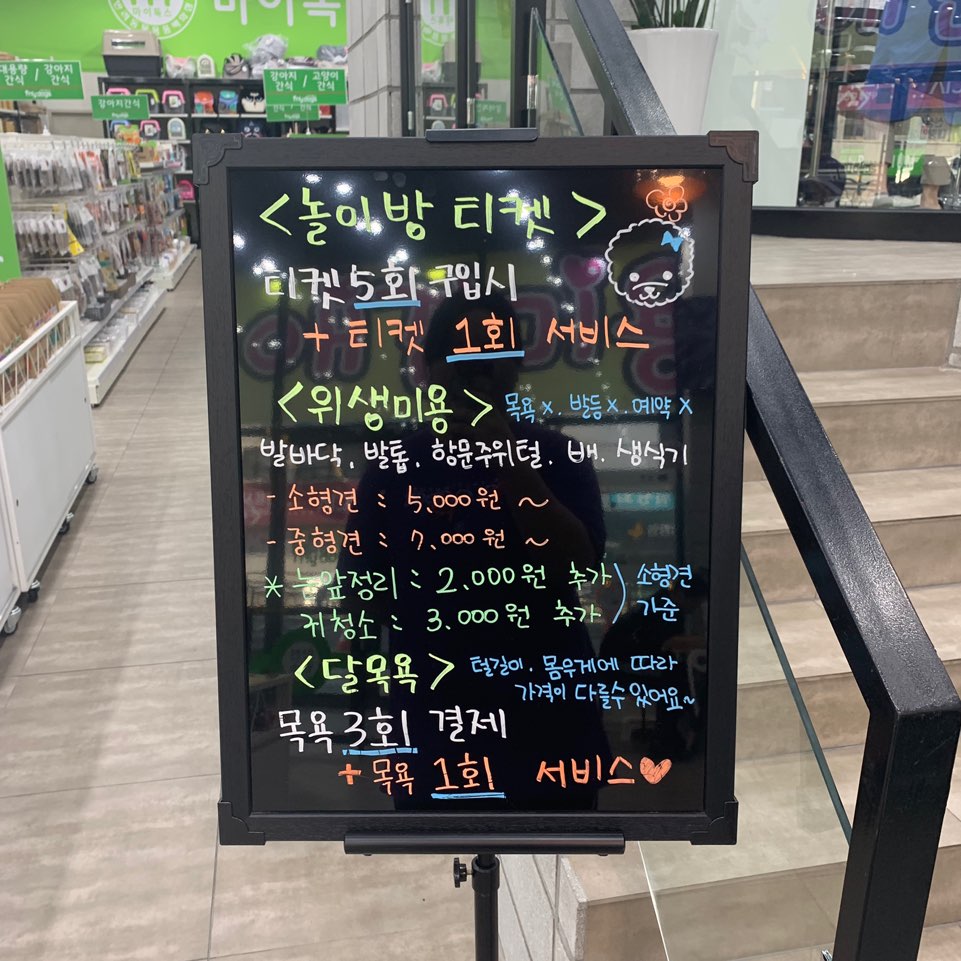 마이독
마이독스
대용량 간식 / 강아지 간식
강아지 간식 / 고양이 간식
강아지간식
<놀이방 티켓>
티켓 5회 구입시
+ 티켓 1회 서비스
<위생미용> 목욕 x. 발등 x. 예약 x
발바닥. 발톱. 항문주위털. 배. 생식기
- 소형견 : 5,000원 ~
- 중형견 : 7,000원 ~
* 눈앞정리 : 2.000원 추가 ) 소형견
귀청소 : 3.000원 추가 기준
<달목욕> 털길이. 몸무게에 따라
가격이 다를수 있어요~
목욕 3회 결제
+ 목욕 1회 서비스